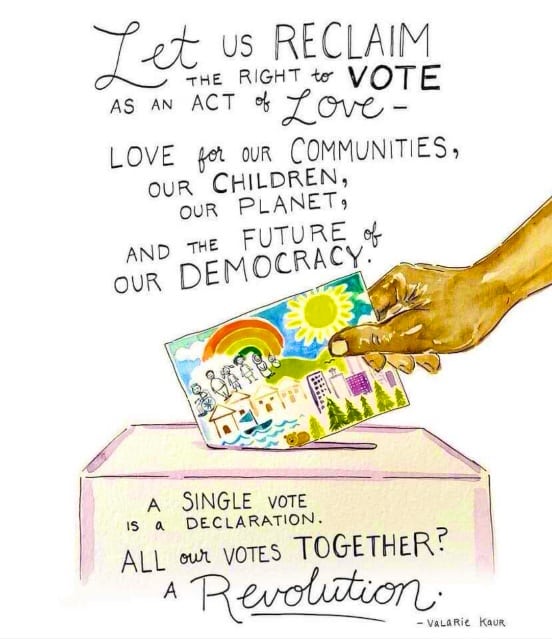 Let us RECLAIM
THE RIGHT to VOTE
AS AN ACT of Love -
LOVE for OUR COMMUNITIES,
OUR CHILDREN,
OUR PLANET,
AND THE FUTURE of
OUR DEMOCRACY.
A SINGLE VOTE
IS a DECLARATION.
ALL our VOTES TOGETHER?
A Revolution.
- VALARIE KAUR